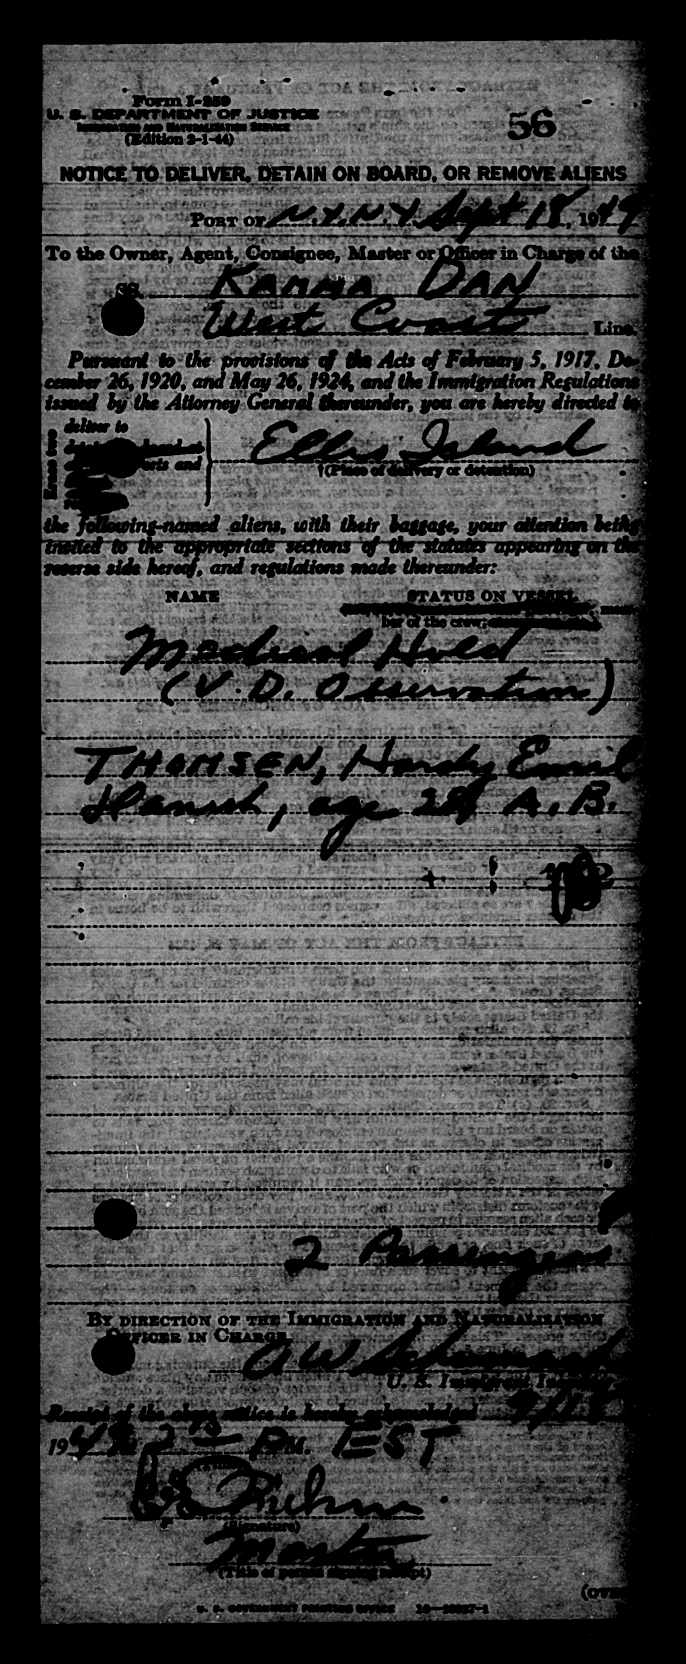 Form I-259
U. S. DEPARTMENT OF JUSTICE
IMMIGRATION AND NATURALIZATION SERVICE
(Edition 2-1-44)
56
NOTICE TO DELIVER, DETAIN ON BOARD, OR REMOVE ALIENS
PORT OF N.Y.N.Y. Sept 18, 1949
To the Owner, Agent, Consignee, Master or Officer in Charge of the
SS KAMMA DAN
West Coast Line.
Pursuant to the provisions of the Acts of February 5, 1917, De-
cember 26, 1920, and May 26, 1924, and the Immigration Regulations
issued by the Attorney General thereunder, you are hereby directed to
deliver to
Ellis Island
(Place of delivery or detention)
the following-named aliens, with their baggage, your attention being
invited to the appropriate sections of the statutes appearing on the
reverse side hereof, and regulations made thereunder:
NAME STATUS ON VESSEL
ber of the crew,
Medical Hold
(V.D. Observation)
THOMSEN, Hardy Emil
Danish, age 28, A.B.
2 Passengers
BY DIRECTION OF THE IMMIGRATION AND NATURALIZATION
OFFICER IN CHARGE
O W
U. S. Immigrant Inspector
Receipt of the above notice is hereby acknowledged 9/18
1949 2 PM. EST
(Signature)
Master
(Title of person signing receipt)
(OVER)
U. S. GOVERNMENT PRINTING OFFICE